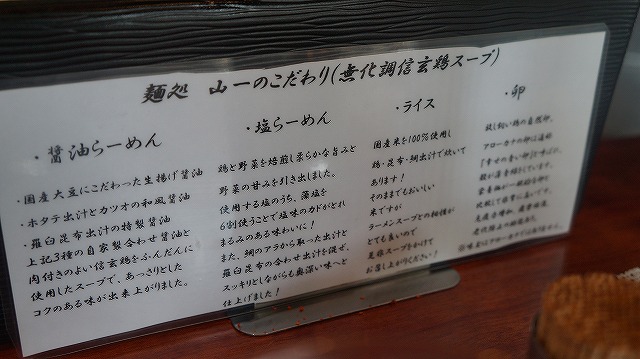 麺処 山一のこだわり(無化調信玄鶏スープ)
・醤油らーめん
・国産大豆にこだわった生揚げ醤油
・ホタテ出汁とカツオの和風醤油
・羅臼昆布出汁の特製醤油
上記3種の自家製合わせ醤油と
肉付きのよい信玄鶏をふんだんに
使用したスープで、あっさりとした
コクのある味が出来上がりました。
・塩らーめん
鶏と野菜を焙煎し柔らかな旨みと
野菜の甘みを引き出しました。
使用する塩のうち、藻塩を
6割使うことで塩味のカドがとれ
まるみのある味わいに!
また、鯛のアラから取った出汁と
羅臼昆布の合わせ出汁を混ぜ、
スッキリとしながらも奥深い味へと
仕上げました!
・ライス
国産米を100%使用し
鶏・昆布・鯛出汁で炊いて
あります!
そのままでもおいしい
米ですが
ラーメンスープとの相性が
とても良いので
是非スープをかけて
お召し上がりください!
・卵
放し飼い鶏の自然卵。
アローカナの卵は通称
「幸せの青い卵」と呼ばれ、